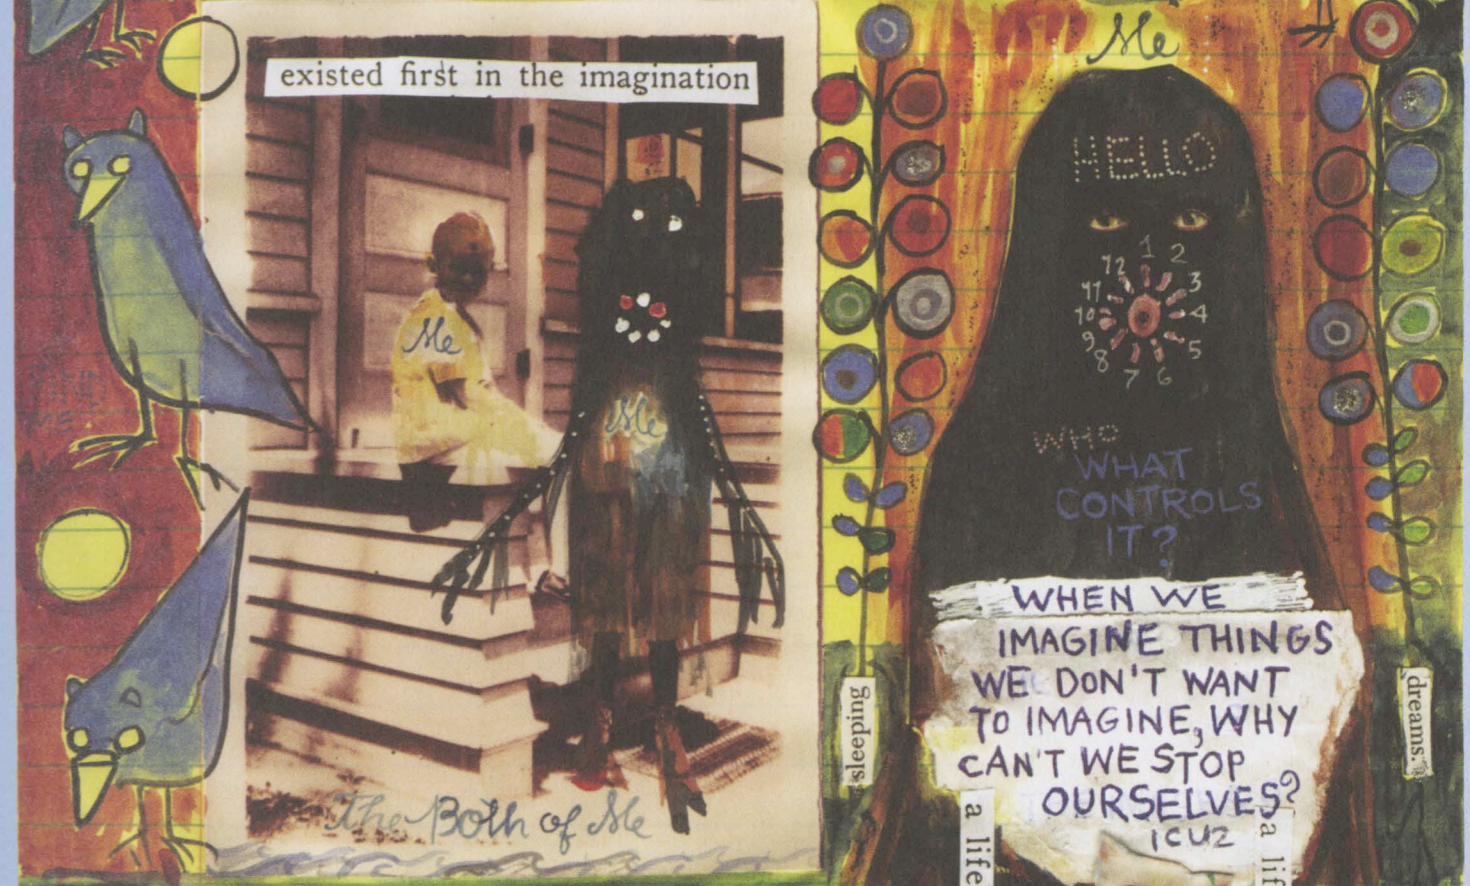 existed first in the imagination
Me
Me
The Both of Me
Me
HELLO
12 1 2 3 4 5 6 7 8 9 10 11
WHO
WHAT
CONTROLS
IT?
WHEN WE
IMAGINE THINGS
WE DON'T WANT
TO IMAGINE, WHY
CAN'T WE STOP
OURSELVES?
ICU2
sleeping
dreams.
a life
a lif